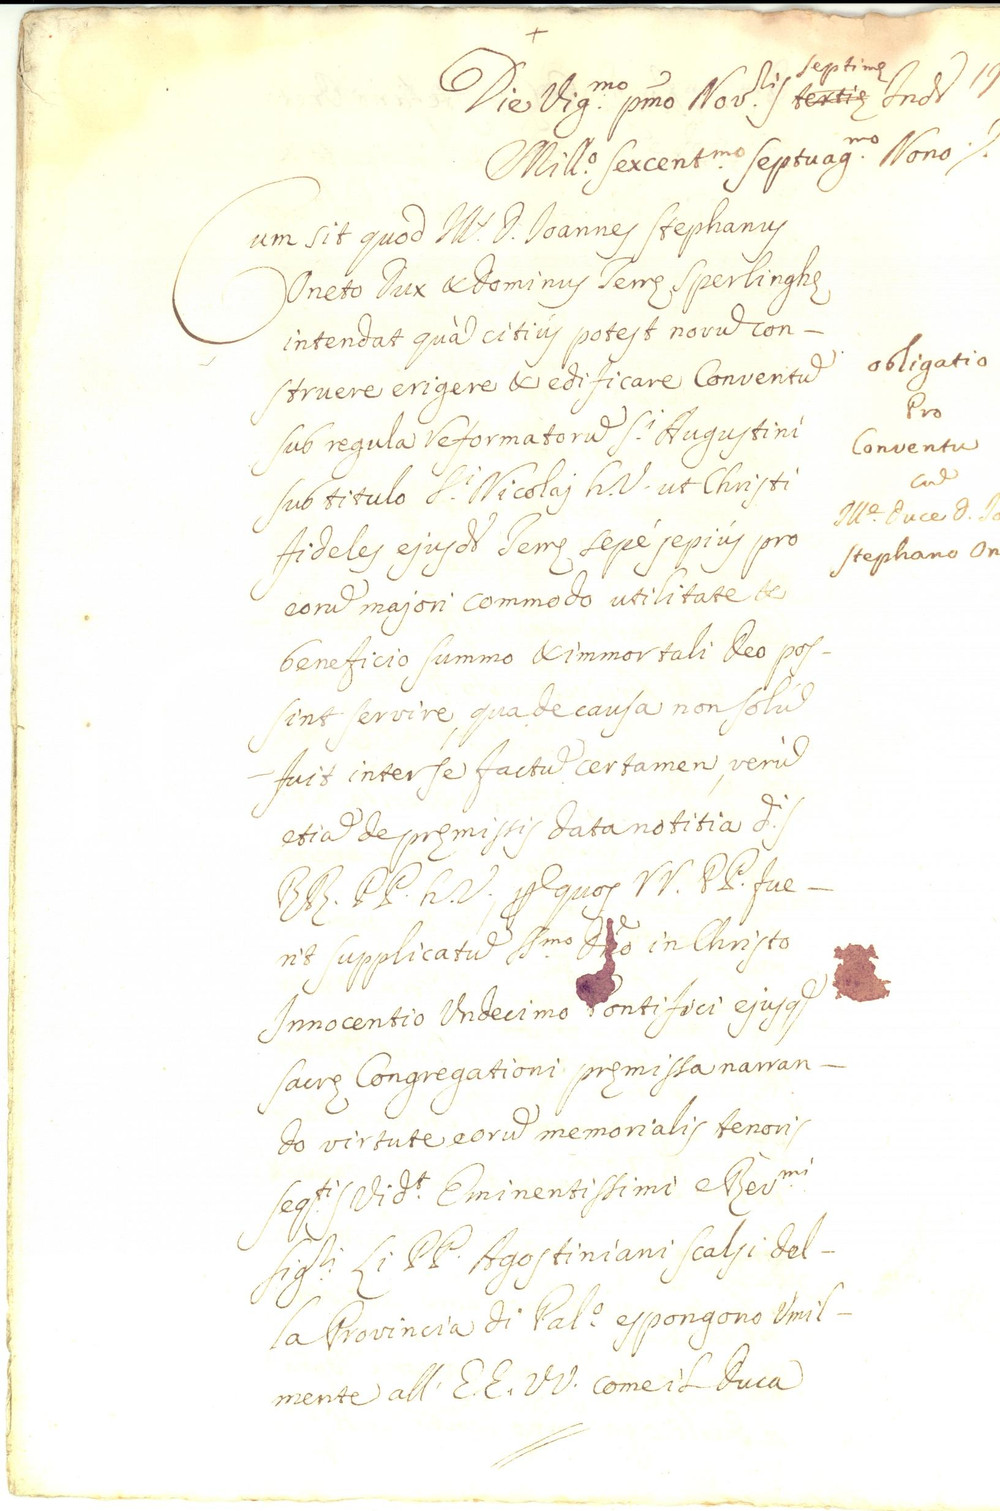 +
septimę
Die Vig.mo p̃mo Nov.ris tertię Ind.
Mill.o sexcent.mo septuag.mo Nono
Cum sit quod Ill. D. Joannes Stephanus
Oneto Dux & Dominus Terrę Sperlinghę
intendat quã citius potest novũ con-
struere erigere & edificare Conventũ
sub regula reformatorũ S.i Augustini
sub titulo S.i Nicolaj h.V. ut Christi
fideles ejusd. Terrę sepé sepius pro
eorũ majori commodo utilitate et
beneficio summo & immortali Deo pos-
sint servire, qua de causa non solũ
fuit inter se factũ certamen, verũ
etiã de pręmissis data notitia d.is
RR. PP. h.V., per quos VV. PP. fue-
rit supplicatũ SS.mo Dño in Christo
Innocentio Undecimo Pontifici ejusq̃
sacrę Congregationi pręmissa narran-
do virtute eorũ memorialis tenoris
seq.tis Vid.t Eminentissimi e Rev.mi
sig.ri Li PP. Agostiniani scalsi del-
la Provincia di Pal.o espongono Umil-
mente all' E.E. VV. come il Duca
obligatio
Pro
Conventu
cũ
Ill.e Duce D. Jo
Stephano On